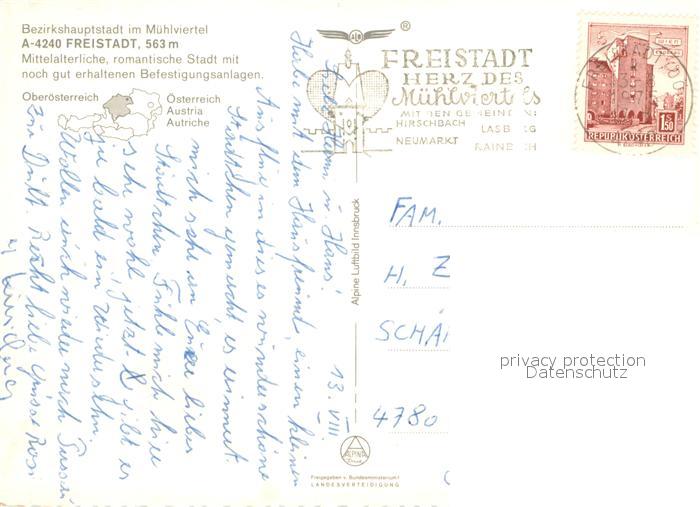 Bezirkshauptstadt im Mühlviertel
A-4240 FREISTADT, 563 m
Mittelalterliche, romantische Stadt mit
noch gut erhaltenen Befestigungsanlagen.
Oberösterreich
Österreich
Austria
Autriche
®
FREISTADT
HERZ DES
Mühlviertels
MIT DEN GEMEINDEN:
HIRSCHBACH LASB RG
NEUMARKT RAINB CH
1.50
REPUBLIK ÖSTERREICH
13. VIII
Habe mit dem einen kleinen
Ausflug in dieses wunderschöne
Städtchen gemacht, es erinnert
mich sehr an Euer liebes
Städtchen. Fühle mich hier
sehr wohl, jetzt gibt es
ja bald ein Wiedersehn.
Wollen euch wieder nach
Recht liebe Grüsse Rosi
Alpine Luftbild Innsbruck
ALPINA
Freigegeben v. Bundesministerium f.
LANDESVERTEIDIGUNG
FAM.
H. Z
SCHÄ
4780
privacy protection
Datenschutz